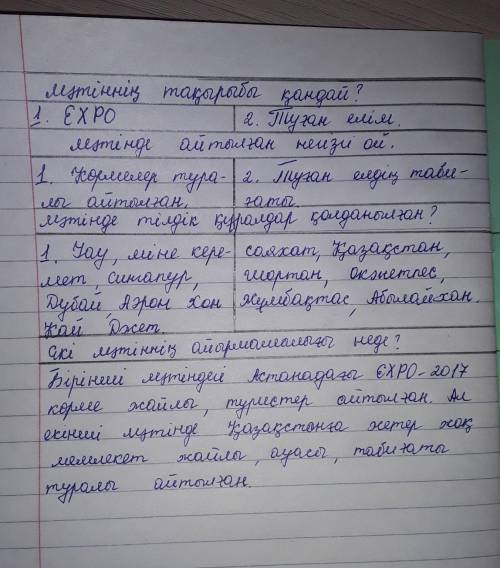 Мәтіннің тақырыбы қандай?
1. EXPO 2. Туған елім.
Мәтінде айтылған негізгі ой.
1. Көрмелер тура- 2. Туған елдің таби-
лы айтылған. ғаты.
Мәтінде тілдік құралдар қолданылған?
1. Уау, міне кере- саяхат, Қазақстан,
мет, сингапур, шортан, оқжетпес,
Дубай, Аэрон хон Жұмбақтас, Абылайхан.
Кай Джет.
Екі мәтіннің айырмашалығы неде?
Бірінші мәтіндей Астанадағы EXPO-2017
көрме жайлы, туристер айтылған. Ал
екінші мәтінде Қазақстанға жетер жақ
мемлекет жайлы, ауасы, табиғаты
туралы айтылған.